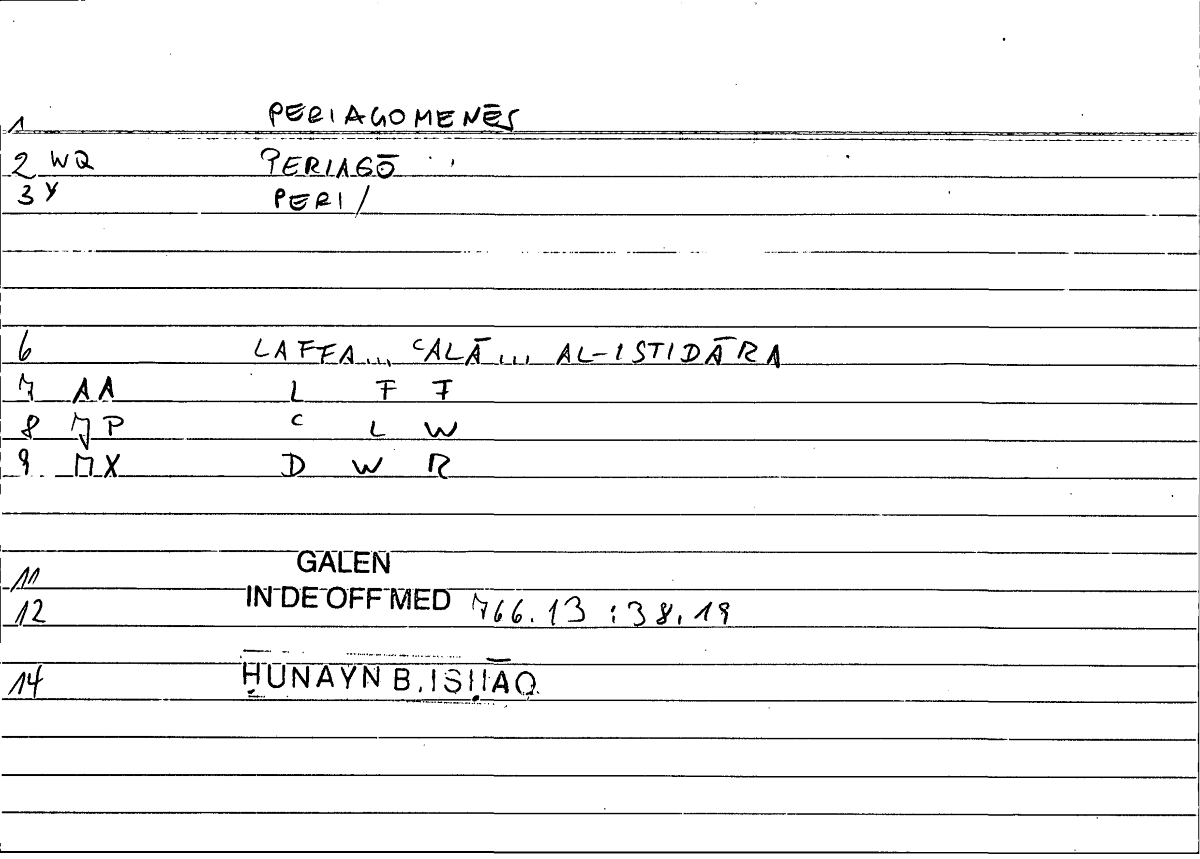 1 PERIAGOMENĒS
2 WQ PERIAGŌ
3 Y PERI /
6 LAFFA... ʿALĀ... AL-ISTIDĀRA
7 AA L F F
8 JP ʿ L W
9 MX D W R
11 GALEN
12 IN DE OFF MED 766.13 : 38.19
14 ḤUNAYN B. ISḤĀQ